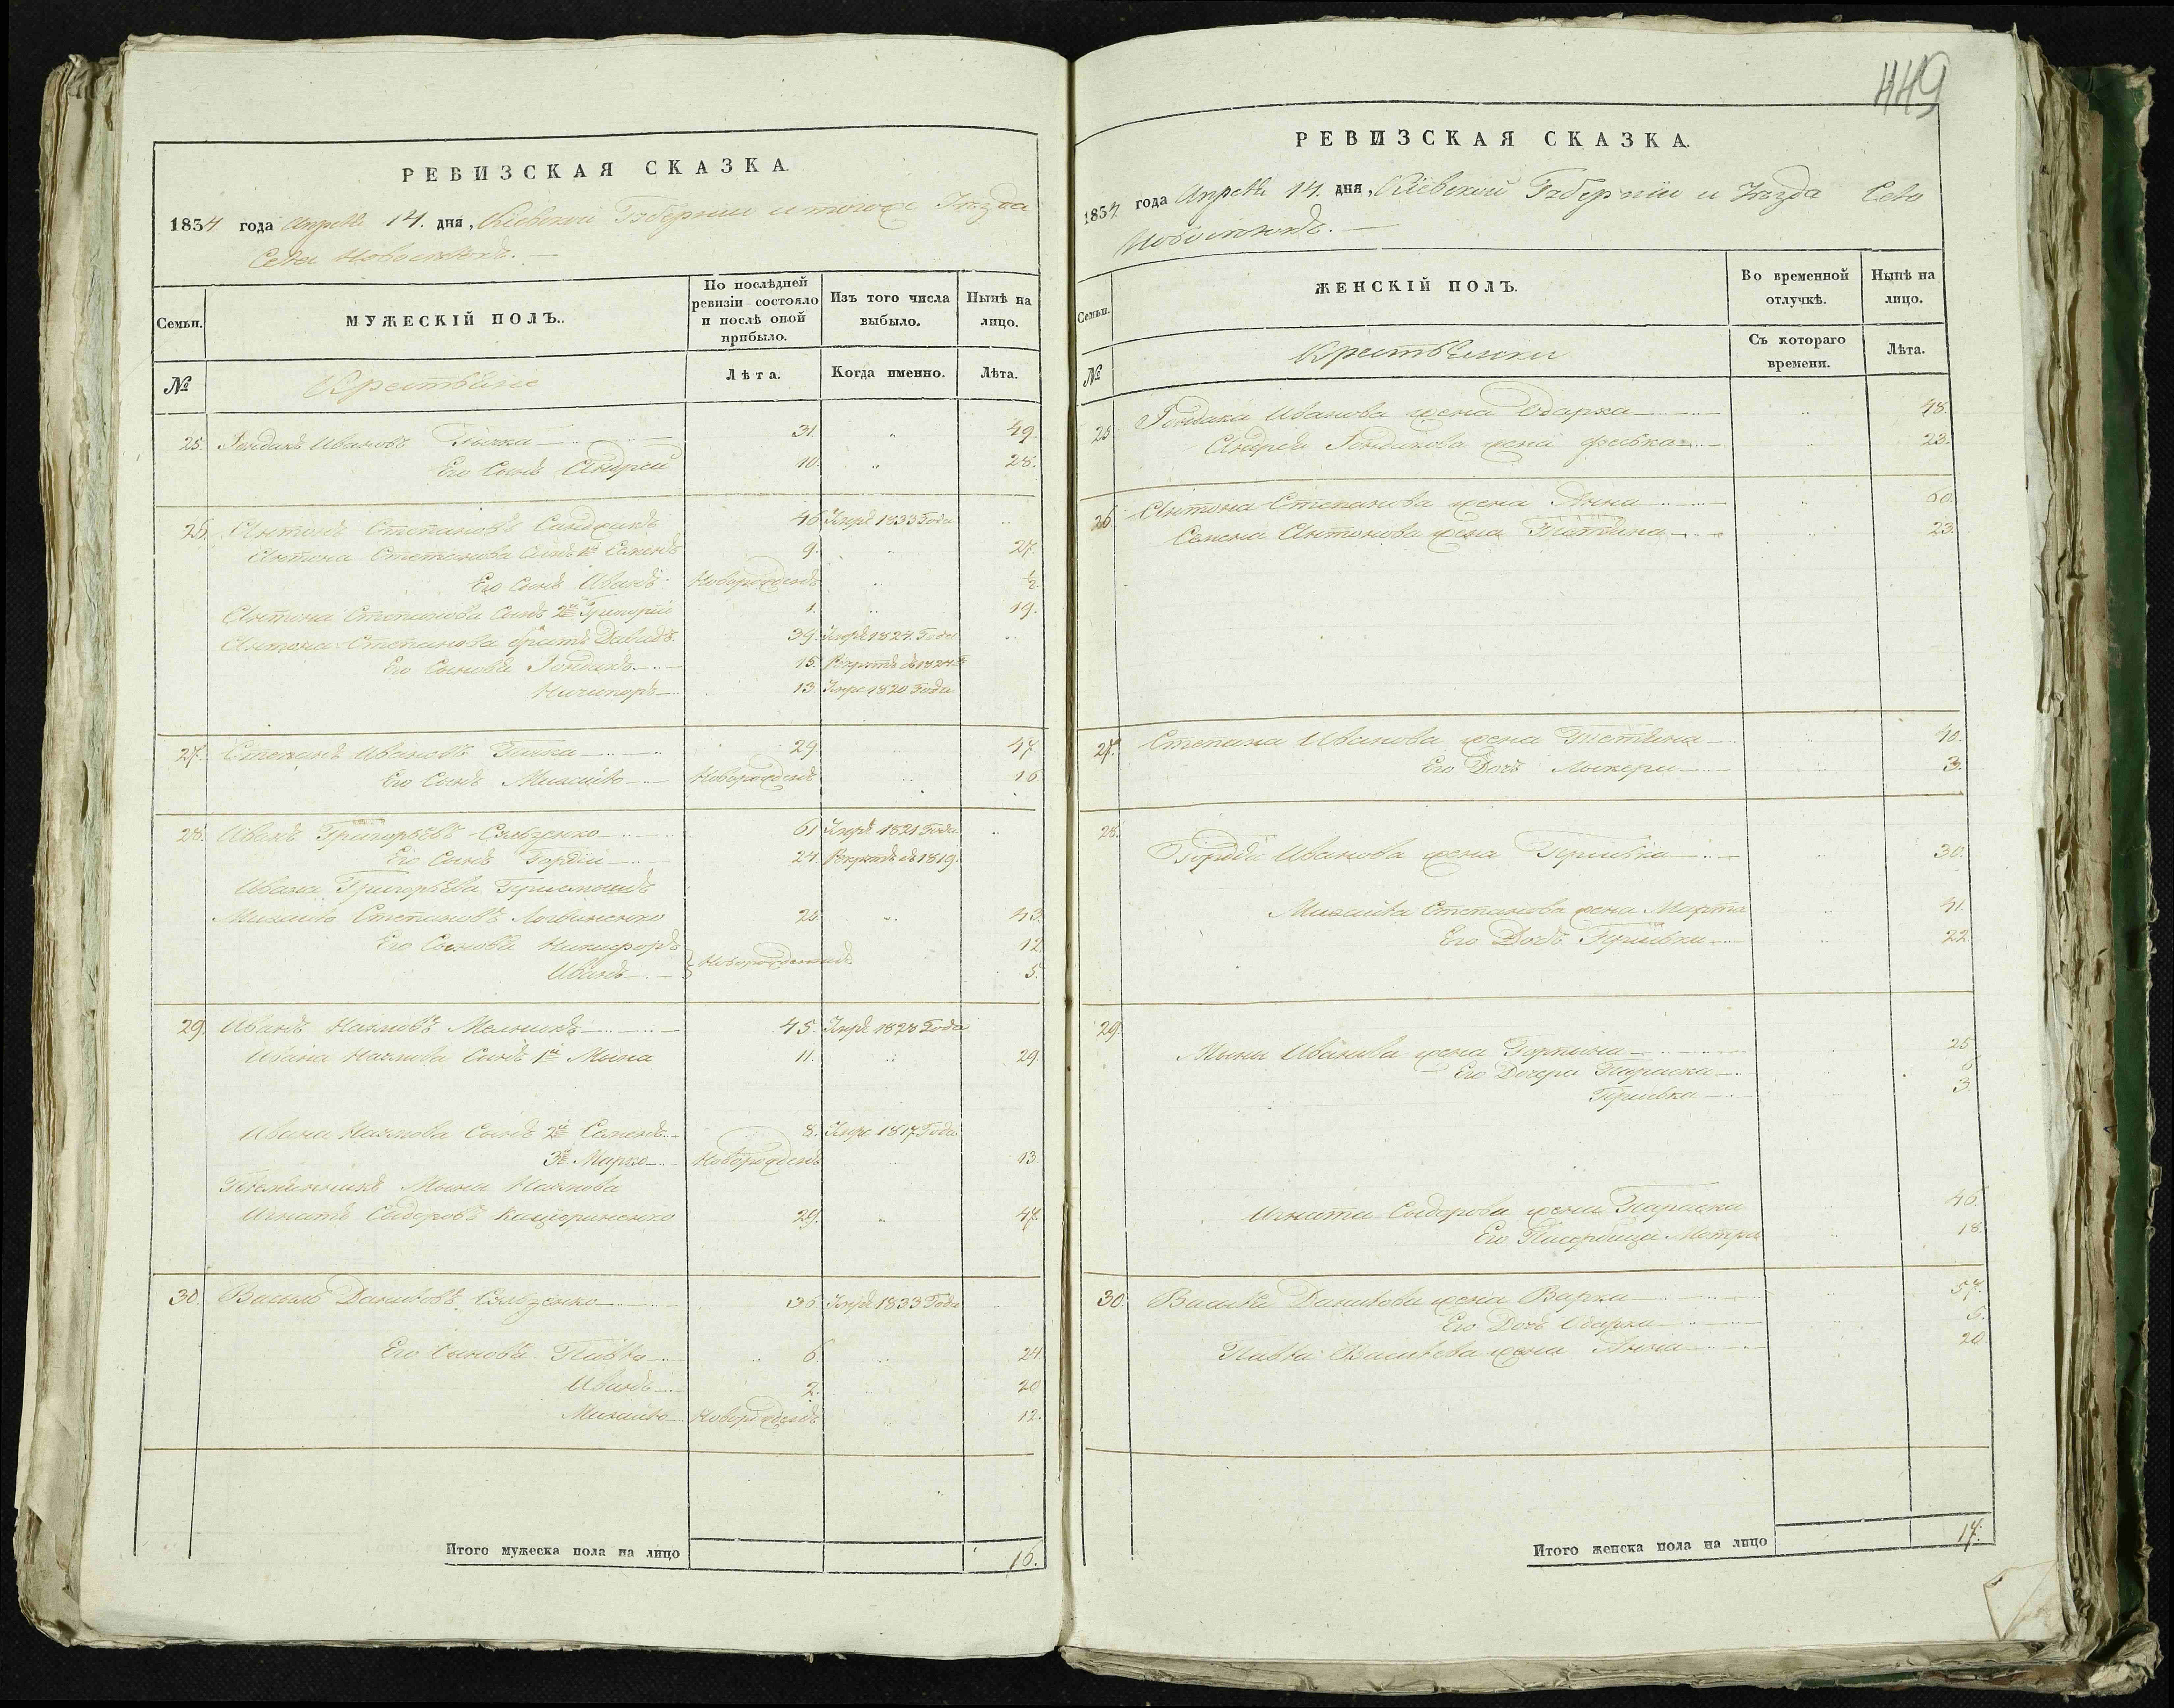 449
РЕВИЗСКАЯ СКАЗКА.
1834 года Апреля 14. дня, Кіевской Губерніи и тогожъ Уезда
Села
Семьи.
МУЖЕСКІЙ ПОЛЪ.
По послѣдней ревизіи состояло и послѣ оной прибыло.
Изъ того числа выбыло.
Нынѣ на лицо.
№
Крестьяне
Лѣта.
Когда именно.
Лѣта.
25. Кондратъ Ивановъ 31. 49.
Его Сынъ Андрей 10. 28.
26. Антонъ Степановъ 46 Умре 1833 Года
Антона Степанова Сынъ 1й Семенъ 9. 27.
Его Сынъ Иванъ Новорожденъ ½.
Антона Степанова Сынъ 2й Григорій 1. 19.
Антона Степанова братъ Давидъ 39. Умре 1827. Года
Его Сыновья 15. Рекрутъ въ
Ничипоръ 13. Умре 1820 Года
27. Степанъ Ивановъ 29. 47.
Его Сынъ Михайло Новорожденъ 16
28. Иванъ Григорьевъ 61 Умре 1821 Года
Его Сынъ Гордій 24. Рекрутъ въ 1819.
Ивана Григорьева
Михайло Степановъ Логвиненко 25 43.
Его Сыновья Никифоръ 12.
Иванъ Новорожденные 5.
29. Иванъ Наумовъ Мельникъ 45. Умре 1828 Года
Ивана Наумова Сынъ 1й Мына 11. 29.
Ивана Наумова Сынъ 2й Семенъ 8. Умре 1817 Года
3й Марко Новорожденъ 13.
Племянникъ Мины Наумова
Игнатъ Сидоровъ 29. 47.
30. Василь Даниловъ 36. Умре 1833 Года
Его Сыновья Павло 6. 24.
Иванъ 2. 20.
Михайло Новорожденъ 12.
Итого мужеска пола на лицо 16.
РЕВИЗСКАЯ СКАЗКА.
1834 года Апреля 14. дня, Кіевской Губерніи и Уезда Села
Семьи.
ЖЕНСКІЙ ПОЛЪ.
Во временной отлучкѣ.
Нынѣ на лицо.
№
Крестьянки
Съ котораго времени.
Лѣта.
25. Ивановa жена Одарка 48.
Андрея жена Феська 23.
26. Антона Степанова жена Анна 60.
Семена Антонова жена 23.
27. Степана Иванова жена 40.
Его Дочь Лыкеря 3.
28. Гордія Иванова жена 30.
Михайла Степанова жена Марта 41.
Его Дочь 22
29. Мины Иванова жена Горпина 25
Его Дочери Параска 6
3
Игната Сидорова жена Параска 46.
Его Пасербица Мотря 18.
30. Василя Данилова жена Варка 57.
Его Дочь Одарка 5.
Павла Васильева жена Анна 20.
Итого женска пола на лицо 17.